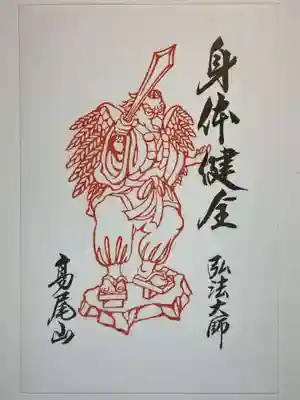 身体健全
弘法大師
高尾山